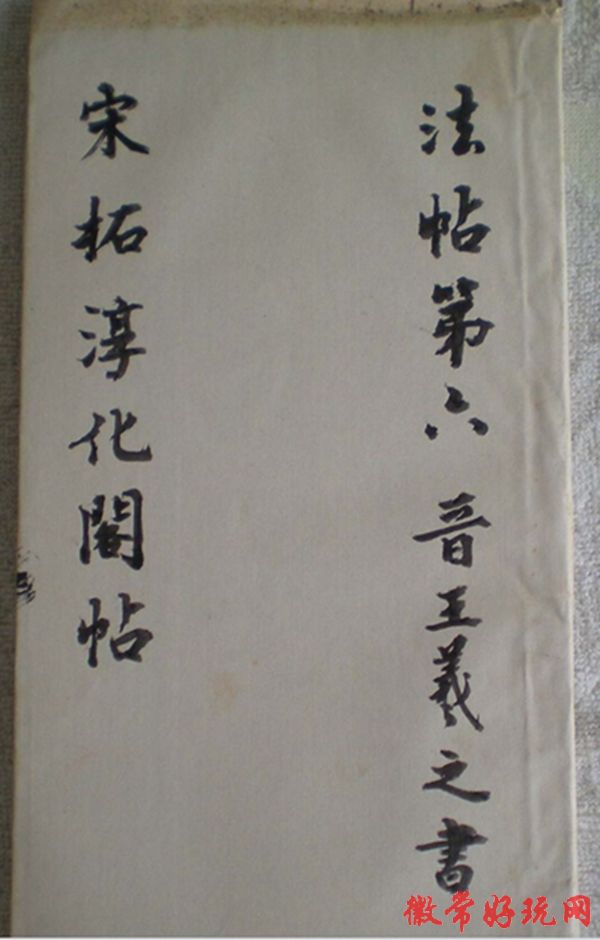 法帖第六 晉王羲之書
宋拓淳化閣帖
徽常好玩网